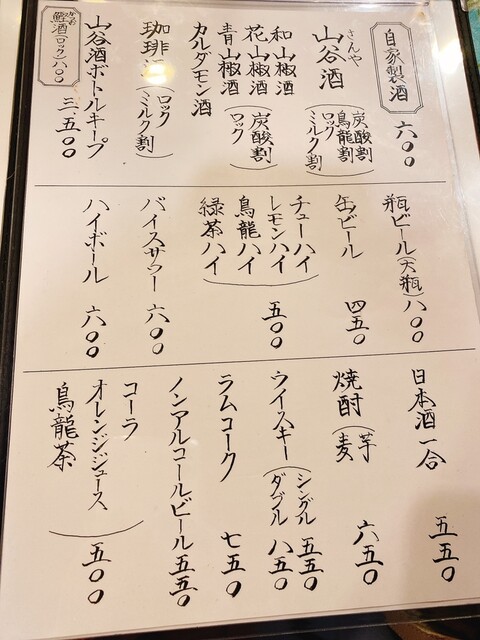 自家製酒
六〇〇
さんや
山谷酒
炭酸割
烏龍割
ロック
ミルク割
和山椒酒
花山椒酒
青山椒酒
炭酸割
ロック
カルダモン酒
珈琲
ロック
ミルク割
山谷酒ボトルキープ
三、五〇〇
かつお
酒(ロック)八〇〇
瓶ビール(大瓶)八〇〇
缶ビール 四五〇
チューハイ
レモンハイ
烏龍ハイ
緑茶ハイ
五〇〇
バイスサワー 六〇〇
ハイボール 六〇〇
日本酒一合 五五〇
焼酎(芋
麦) 六五〇
ウイスキー(シングル 五五〇
ダブル 八五〇
ラムコーク 七五〇
ノンアルコールビール五五〇
コーラ
オレンジジュース
烏龍茶
五〇〇